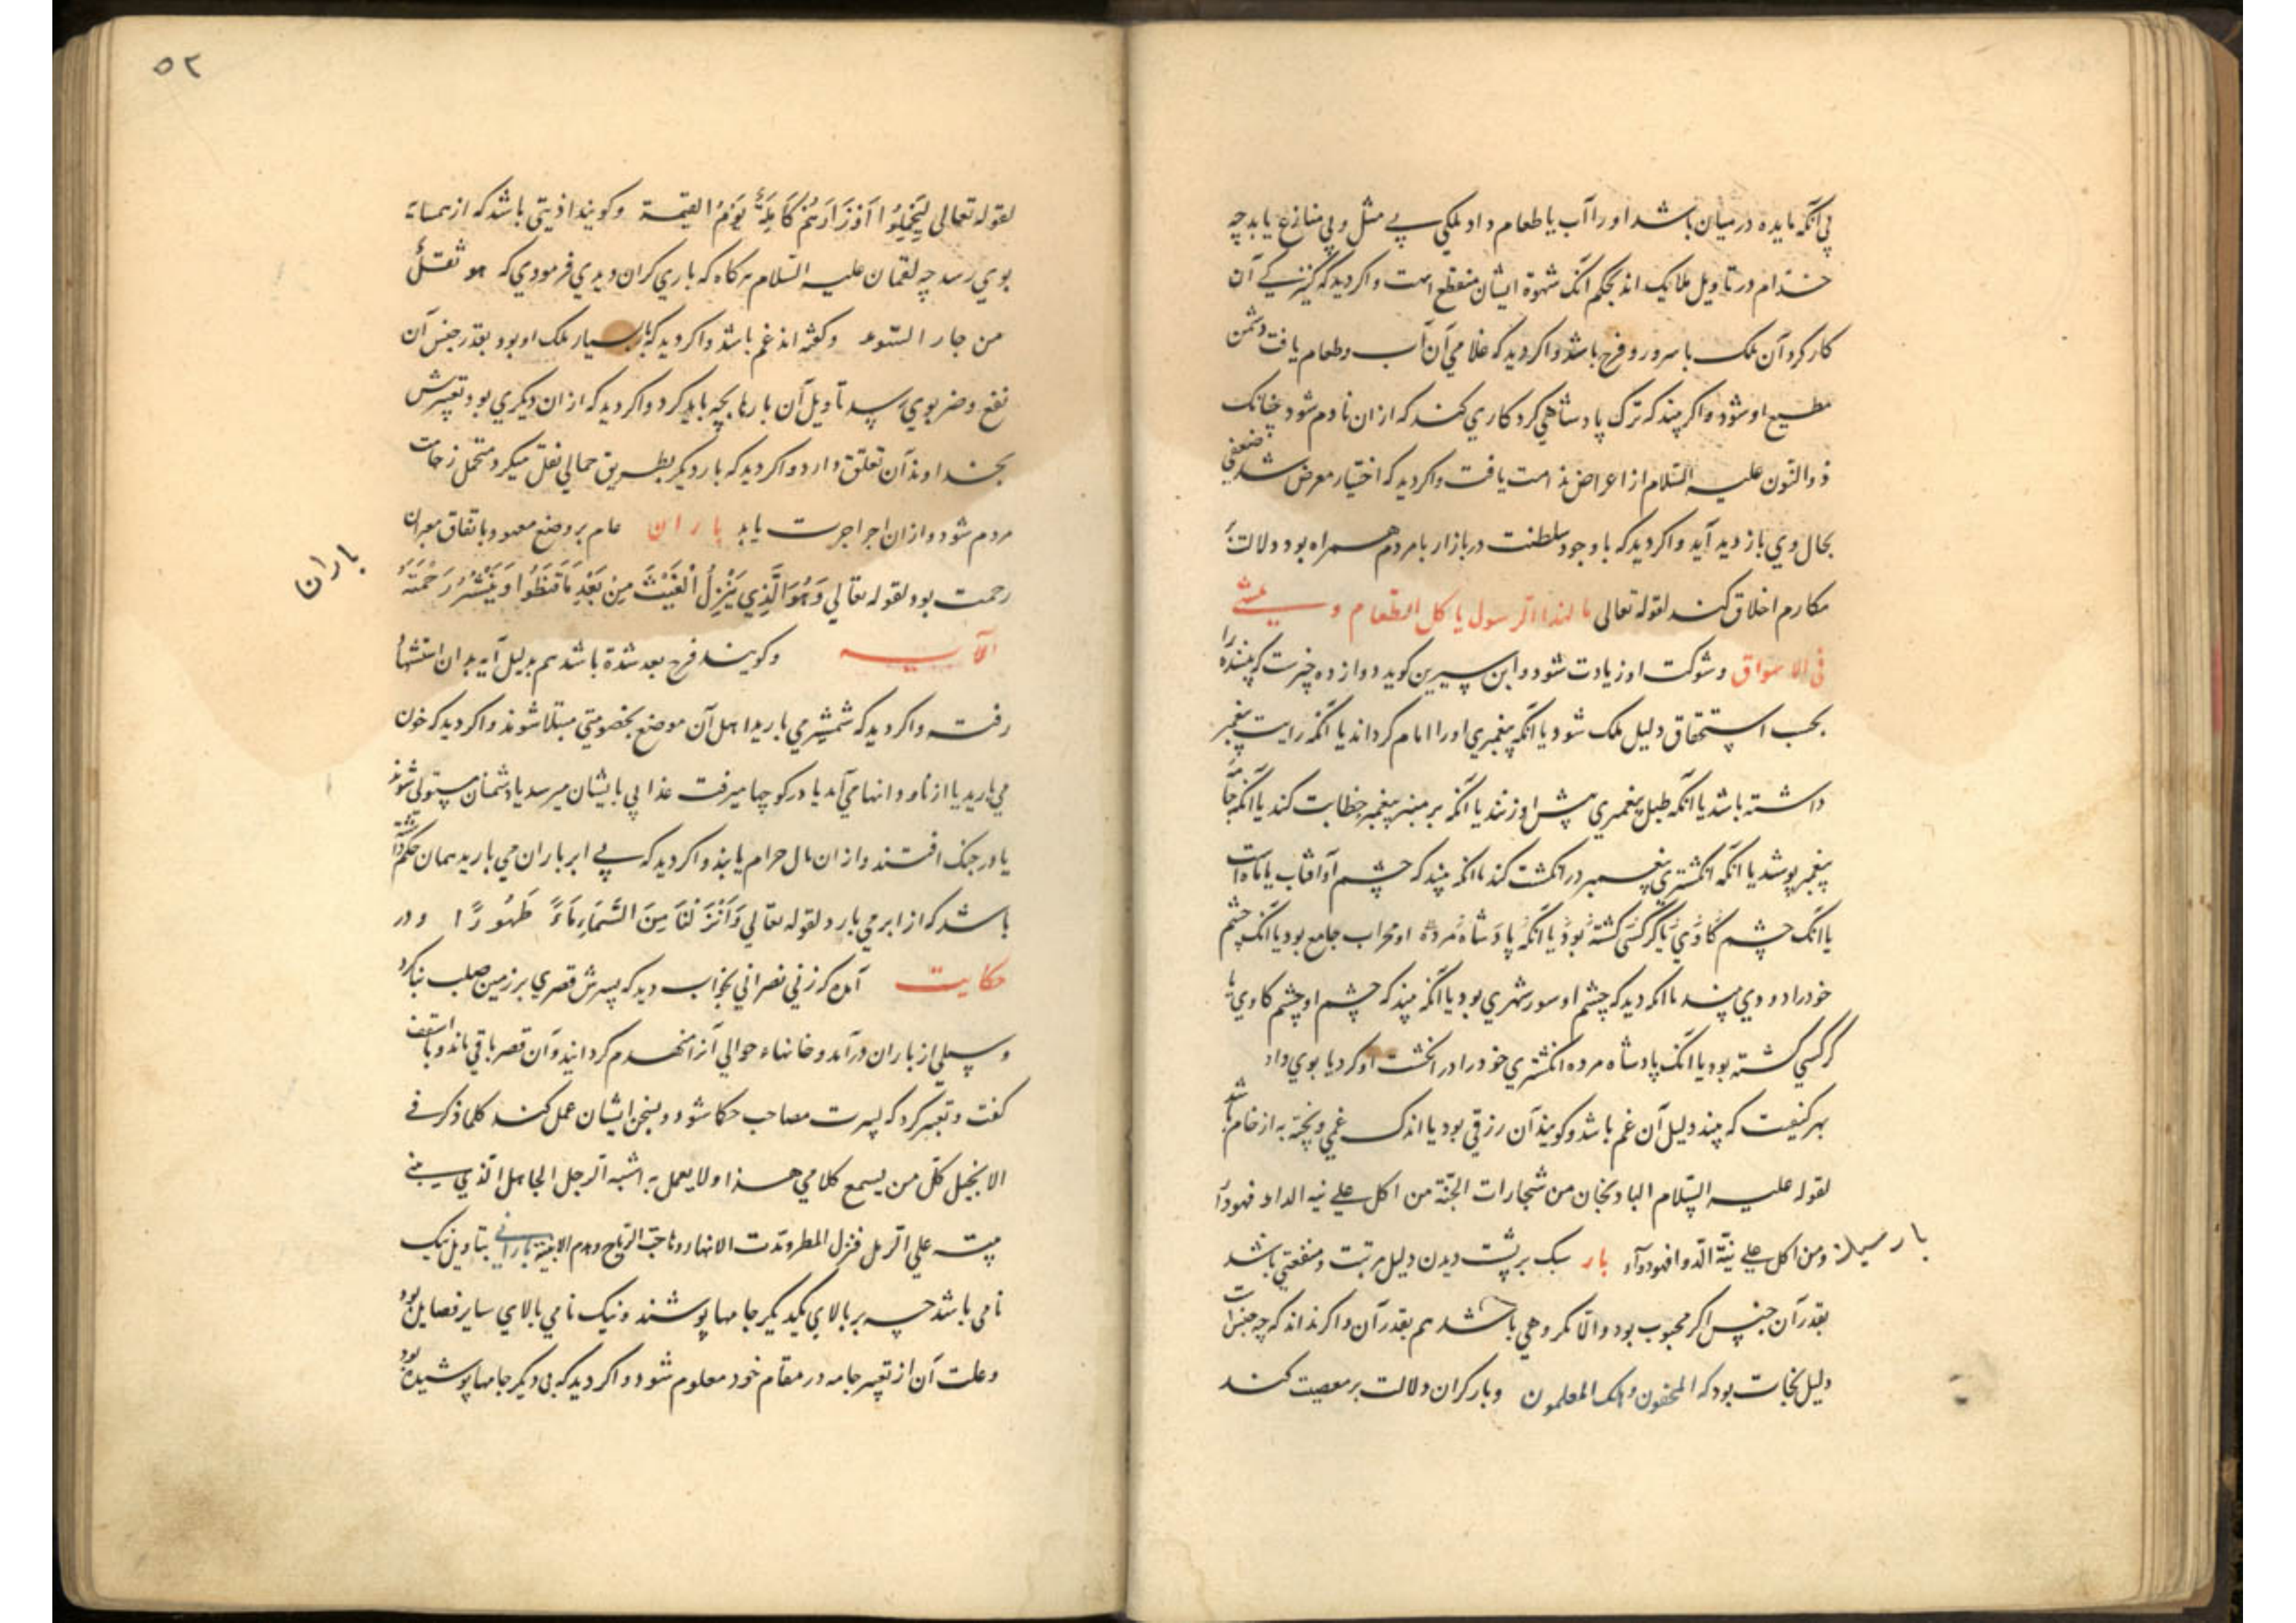 پی آنکه مایده در میان باشد او را آب یا طعام داد ملکی بے مثل و پی منازع یابد چه
خدّام در تاویل ملایک اند بحکم آنک شهوة ایشان منقطع است و اکر دید که کنیزکے آن
کار کرد آن ملک با سرور و فرح باشد و اکر دید که غلامی آن آب و طعام یافت دشمن
مطیع او شود و اکر بیند که ترک پادشاهی کرد کاری کند که از ان نادم شود چنانک
ذوالنّون علیه السّلام از اعراض ندامت یافت و اکر دید که اختیار معرض شد ضعفی
بحال وی بازدید آید و اکر دید که با وجود سلطنت در بازار با مردم همراه بود دلالت بر
مکارم اخلاق کند لقوله تعالی ما لهذا الرسول یاکل الطعام و یمشے
فی الاسواق و شوکت او زیادت شود و ابن سیرین کوید دوازده چیزست که بیننده را
بحسب استحقاق دلیل ملک شود یا آنکه پیغمبری او را امام کرداند یا آنکه رایت پیغمبر
داشته باشد یا آنکه طبل پیغمبری پیش او زنند یا آنکه بر منبر پیغمبر خطابت کند یا آنکه جامه
پیغمبر پوشد یا آنکه انکشتری پیغمبر در انکشت کند یا آنکه بیند که چشم او آفتاب یا ماه است
یا آنک چشم کاوی یا کرکسی کشته بود یا آنکه پادشاه مرده او محراب جامع بود یا آنک چشم
خود را دودی بیند یا آنکه دید که چشم او سور شهری بود یا آنکه بیند که چشم او چشم کاوی یا
کرکسی کشته بود یا آنک پادشاه مرده انکشتری خود را در انکشت او کرد یا بوی داد
بهر کیفیت که بیند دلیل آن غم باشد و کویند آن رزقی بود یا اندک غمی و پخته به از خام باشد
لقوله علیه السّلام الباد نجان من شجارات الجنّة من اکل علے نیه الداء فهو داء
بار سبک
و من اکل علے نیّة الدّوا فهو دوآء بار سبک بر پشت دیدن دلیل مرتبت و منفعتی باشد
بقدر آن جنس اکر محبوب بود و الّا مکروهی باشد هم بقدر آن و اکر نداند که چه جنس است
دلیل نجات بود که المخفون و هلک المعلمون و بار کران دلالت بر معصیت کند
۵۲
لقوله تعالی لِیَحْمِلُوا اَوْزَارَهُمْ کَامِلَةً یَوْمَ القیمة و کویند اذیتی باشد که از همسایه
بوی رسد چه لقمان علیه السّلام هرکاه که باری کران دیدی فرمودی که هو ثقلٌ
من جار السّوء و کفته اند غم باشد و اکر دید که بار بسیار ملک او بود بقدر جنس آن
نفع و ضر بوی رسد تاویل آن بارها بجه باید کرد و اکر دید که از ان دیکری بود تعبیرش
بخداوند آن تعلّق دارد و اکر دید که بار دیکر بطریق حمالی نقل میکرد متحمل زحمات
مردم شود و از ان اجرا جرت یابد باران عام بر وضع معهود باتفاق معبران
باران
رحمت بود لقوله تعالی وَهُوَ الَّذِی یُنَزِّلُ الْغَیْثَ مِنْ بَعْدِ مَا قَنَطُوا وَیَنْشُرُ رَحْمَتَهُ
الآیه و کویند فرح بعد شدة باشد هم بدلیل آیه بدان استشهاد
رفته و اکر دید که شمشیر می بارید اهل آن موضع بخصومتی مبتلا شوند و اکر دید که خون
می بارید یا از ناودانها می آمد یا در کوچها میرفت عذابی بایشان میرسد یا دشمنان مستولی شوند
یا در جنک افتند و از ان مال حرام یابند و اکر دید که بے ابر باران می بارید همان حکم داشته
باشد که از ابر می بارد لقوله تعالی وَاَنْزَلْنَا مِنَ السَّمَاءِ مَاءً طَهُورًا و در
حکایت آمده که زنی نصرانی بخواب دید که پسرش قصری بر زمین صلب بنا کرد
و سیلی از باران در آمد و خانهاء حوالی آنرا منهدم کردانید و آن قصر باقی ماند و با اسقف
کفت و تعبیر کرد که پسرت مصاحب حکما شود و بسخن ایشان عمل کند کما ذکر فے
الانجیل کلّ من یسمع کلامی هذا و لا یعمل به اشبه الرجل الجاهل الّذی یبنے
بیته علی الرمل فنزل المطر و مدّت الانهار و هاجت الریاح و هدم الابنیة بارانے بتاویل نیک
نامی باشد چه بر بالای یکدیکر جامها پوشند و نیک نامی بالای سایر فضایل بود
و علت آن از تعبیر جامه در مقام خود معلوم شود و اکر دید که بی دیکر جامها پوشیده بود